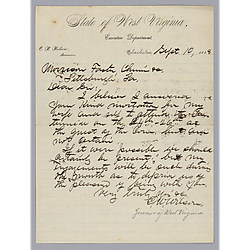 State of West Virginia,
Executive Department,
Charleston, Sept. 10, 1888
Morrison Foster Chmn &c
Pittsburgh, Pa
Dear Sir,
I believe I answered
your kind invitation for my
wife and self to attend the Cen-
tennial on the
as
the guest of the
but am
not certain.
If it were possible we should
certainly be present, but my
engagements will be such during
the month as to deprive us of
the pleasure of being with you.
Very truly yours
E W Wilson
Governor of West Virginia